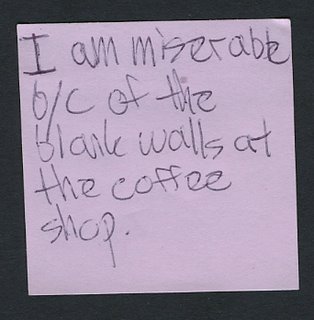 I am miserable
b/c of the
blank walls at
the coffee
shop.